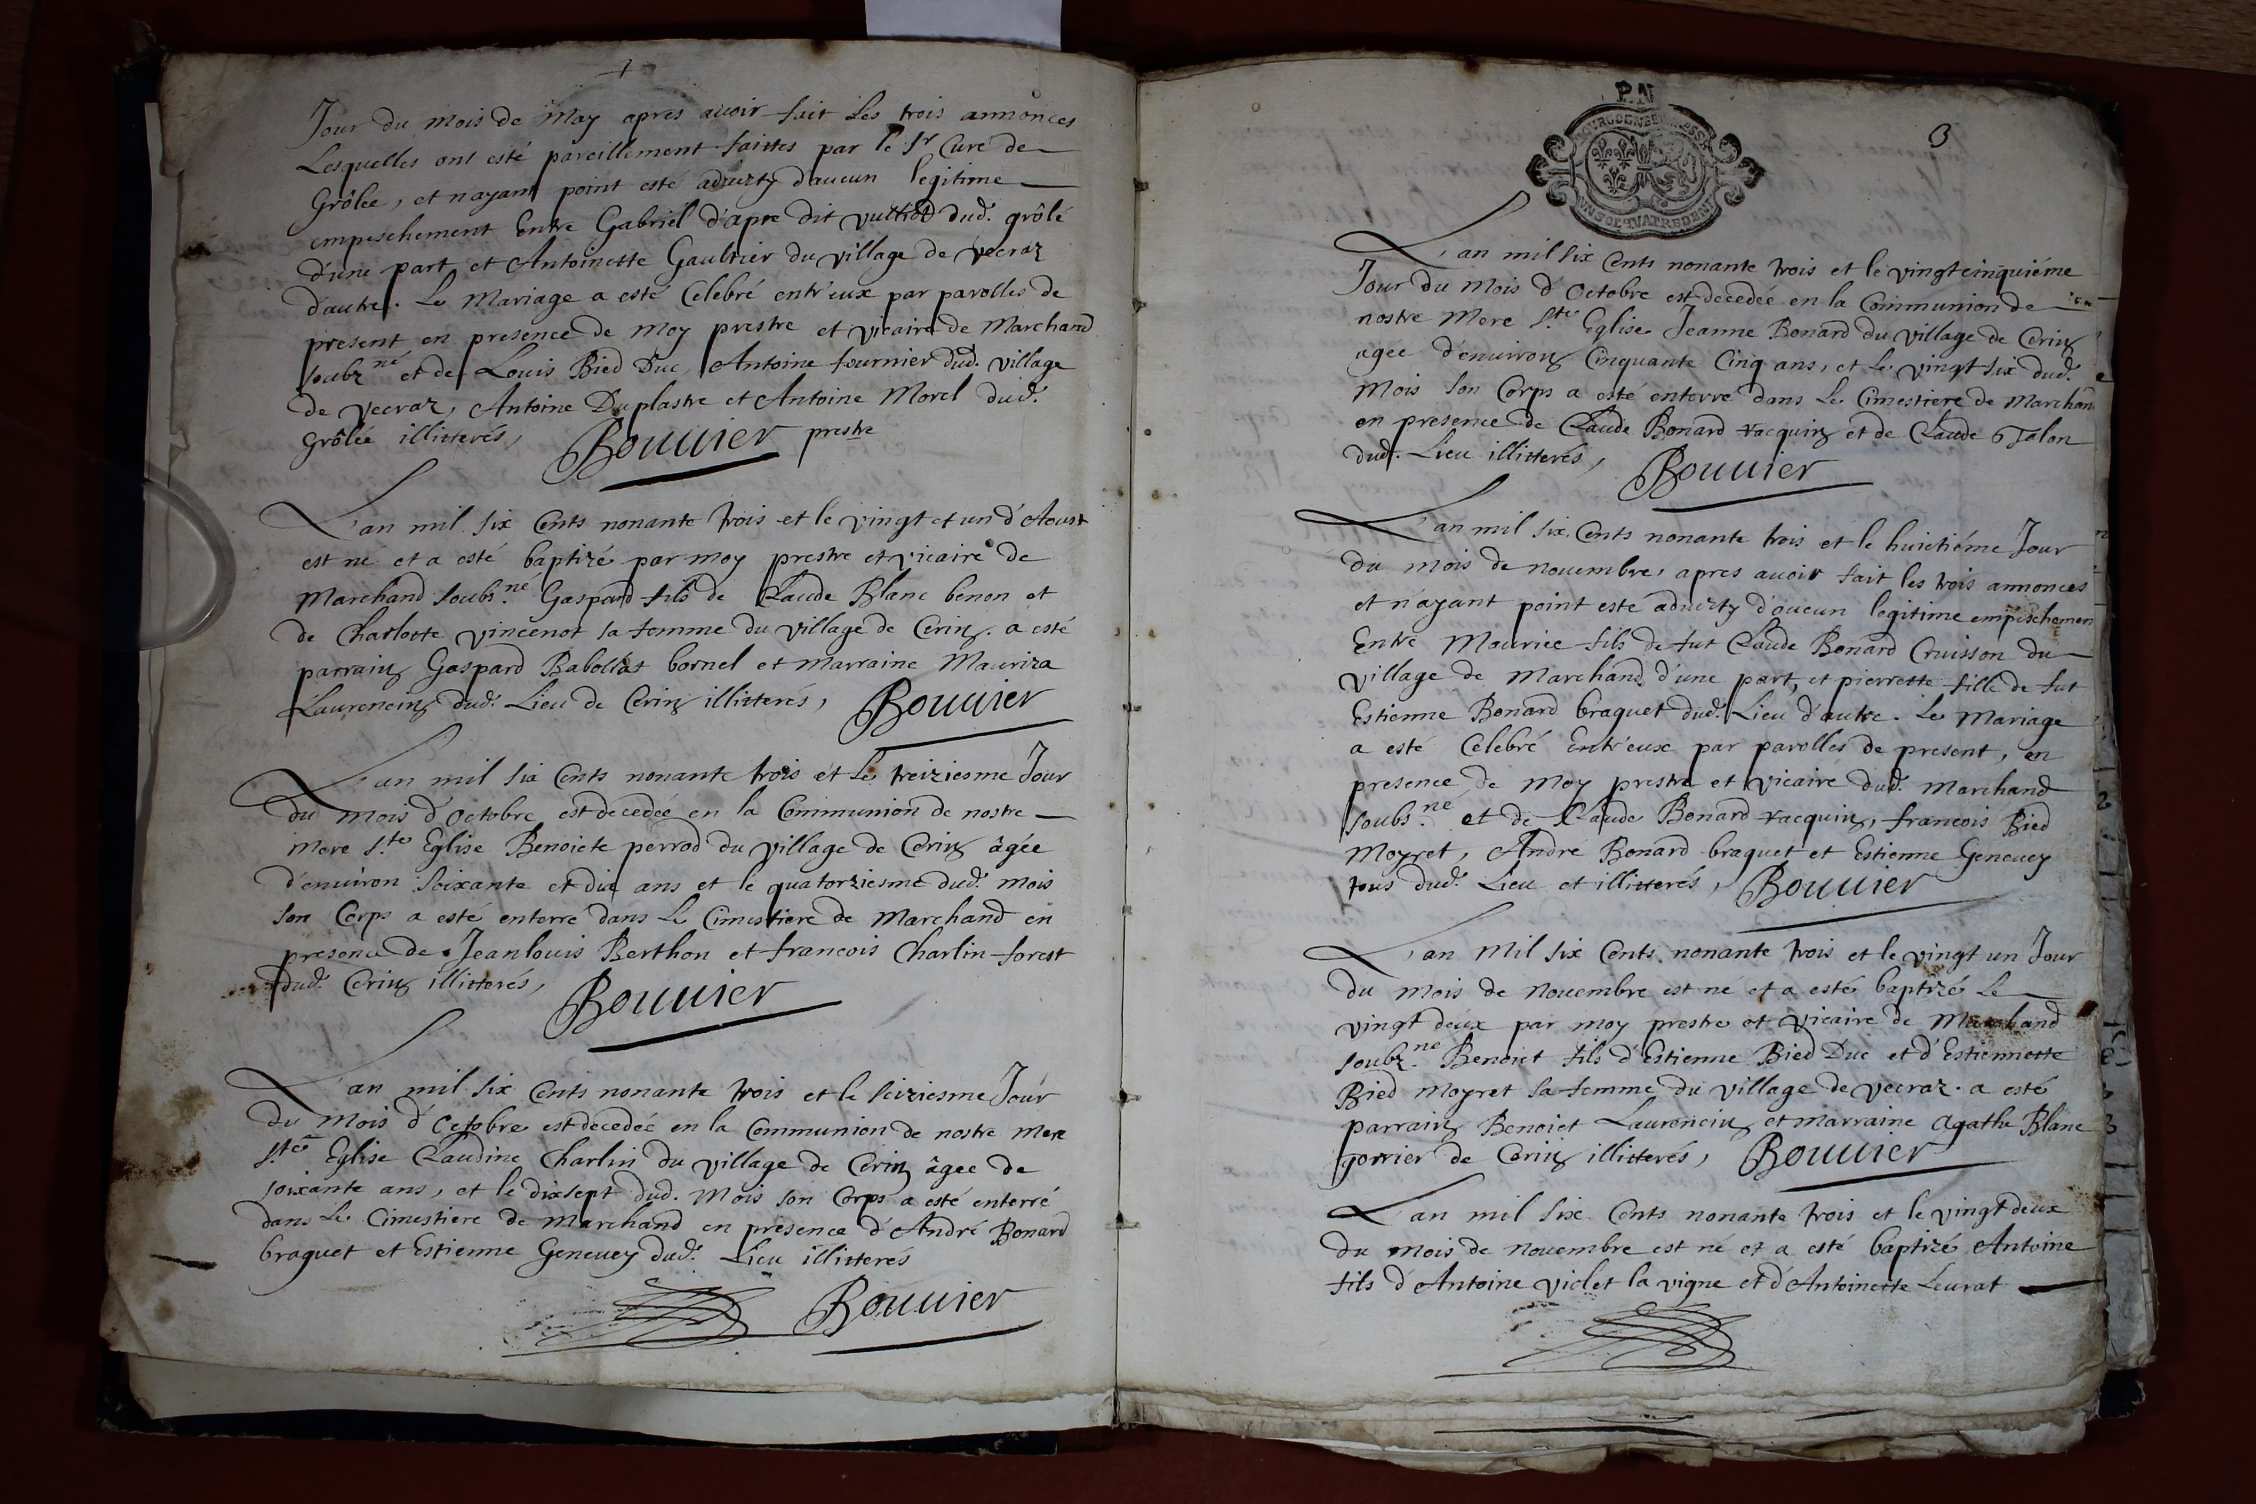 Jour du mois de May apres auoir fait Les trois annonces
Lesquelles ont esté pareillement faittes par le Sr Curé de
Grôlée, et n'ayant point esté aduerty d'aucun legitime
empeschement Entre Gabriel d'apre dit dud. grôlé
d'une part et Antoinette Gaultier du village de vecraz
d'autre. Le Mariage a esté Celebré entr'eux par parolles de
present en presence de Moy prestre et vicaire de Marchand
soubz.né et de Louis Bied Duc, Antoine fournier dud. village
de vecraz, Antoine Duplastre et Antoine Morel dud.
Grôlée illitterés, Bouuier prestre
L'an mil six Cents nonante trois et le vingt et un d'Aoust
est né et a esté baptizé par moy prestre et vicaire de
Marchand soubs.né Gaspard fils de Claude Blanc benon et
de Charlotte vincenot sa femme du village de Cerin. a esté
parrain Gaspard Babollat bornel et Marraine Mauriza
Laurencin dud. Lieu de Cerin illitterés, Bouuier
L'an mil six Cents nonante trois et Le treiziesme Jour
du mois d'octobre est decedée en la Communion de nostre
mere S.te Eglise Benoiete perrod du village de Cerin âgée
d'enuiron soixante et dix ans et le quatorziesme dud. mois
son Corps a esté enterré dans Le Cimestiere de Marchand en
presence de Jeanlouis Berthon et francois Charlin forest
dud. Cerin illitterés, Bouuier
L'an mil six Cents nonante trois et le seiziesme Jour
du Mois d'octobre est decedée en la Communion de nostre Mere
S.te Eglise Claudine Charlin du village de Cerin âgee de
soixante ans, et le dixsept dud. Mois son Corps a esté enterré
dans Le Cimestiere de Marchand en presence d'André Bonard
braguet et Estienne Geneuey dud. Lieu illitterés
Bouuier
P.N
3
BOURGOGNE BRESSE
UN SOL QUATRE DEN
L'an mil six Cents nonante trois et le vingtcinquiéme
Jour du Mois d'Octobre est decedée en la Communion de
nostre Mere S.te Eglise Jeanne Bonard du village de Cerin
agée d'enuiron Cinquante Cinq ans, et Le vingt six dud.
Mois son Corps a esté enterré dans Le Cimestiere de Marchan
en presence de Claude Bonard vacquin et de Claude Talon
dud. Lieu illitterés, Bouuier
L'an mil six Cents nonante trois et le huictiéme Jour
du mois de nouembre, apres auoir fait les trois annonces
et n'ayant point esté aduerty d'aucun legitime empeschemen
Entre Mourice fils de fut Claude Bonard Cruisson du
village de Marchand d'une part, et pierrette fille de fut
Estienne Bonard braguet dud. Lieu d'autre. Le Mariage
a esté Celebré Entr'eux par parolles de present, en
presence de Moy prestre et vicaire dud. Marchand
soubs.né et de Claude Bonard vacquin, francois Bied
Moyret, André Bonard braguet et Estienne Geneuey
tous dud. Lieu et illitterés, Bouuier
L'an Mil six Cents nonante trois et le vingt un Jour
du Mois de Nouembre est né et a esté baptizé Le
vingt deux par moy prestre et vicaire de Marchand
soubz.né Benoict fils d'Estienne Bied Duc et d'Estiennette
Bied moyret sa femme du village de vecraz. a esté
parrain Benoict Laurencin et marraine Agathe Blanc
gorrier de Cerin illitterés, Bouuier
L'an mil six Cents nonante trois et le vingt deux
du mois de nouembre est né et a esté baptizé Antoine
fils d'Antoine violet la vigne et d'Antoinette Leurat